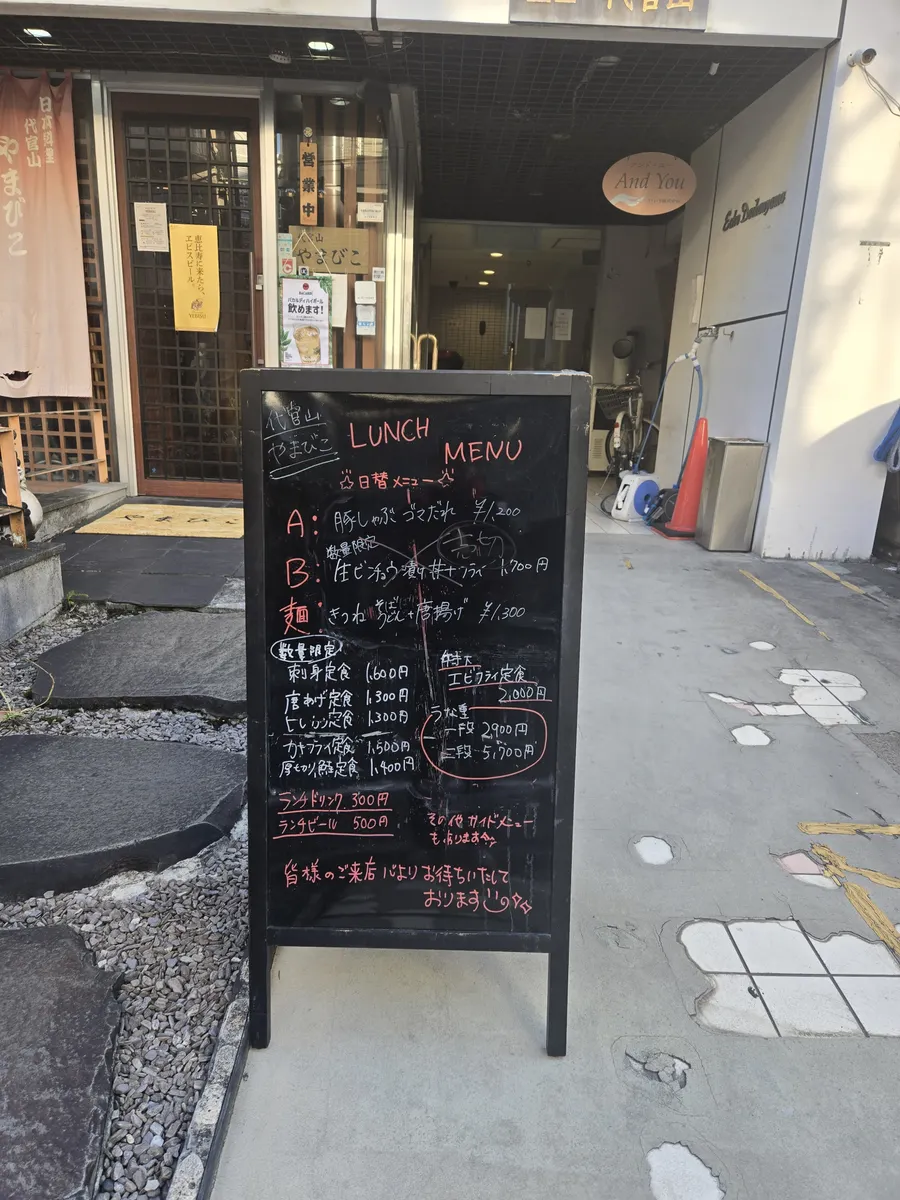 代官山
日本料理
代官山
やまびこ
営業中
And You
恵比寿に来たら、
エビスビール。
やまびこ
バカルディハイボール
飲めます!
やまびこ
代官山
やまびこ
LUNCH
MENU
日替メニュー
A: 豚しゃぶ ゴマだれ ¥1,200
数量限定
売切
B: 生ビンチョウ漬け丼+フライ 1,700円
麺: きつね そば うどん+唐揚げ ¥1,300
数量限定
刺身定食 1,600円
唐あげ定食 1,300円
ヒレカツ定食 1,300円
カキフライ定食 1,500円
厚切り鮭定食 1,400円
特大
エビフライ定食
2,000円
うな重
一段 2,900円
二段 5,700円
ランチドリンク 300円
ランチビール 500円
その他 サイドメニュー
もあります
皆様のご来店 心よりお待ちいたして
おります